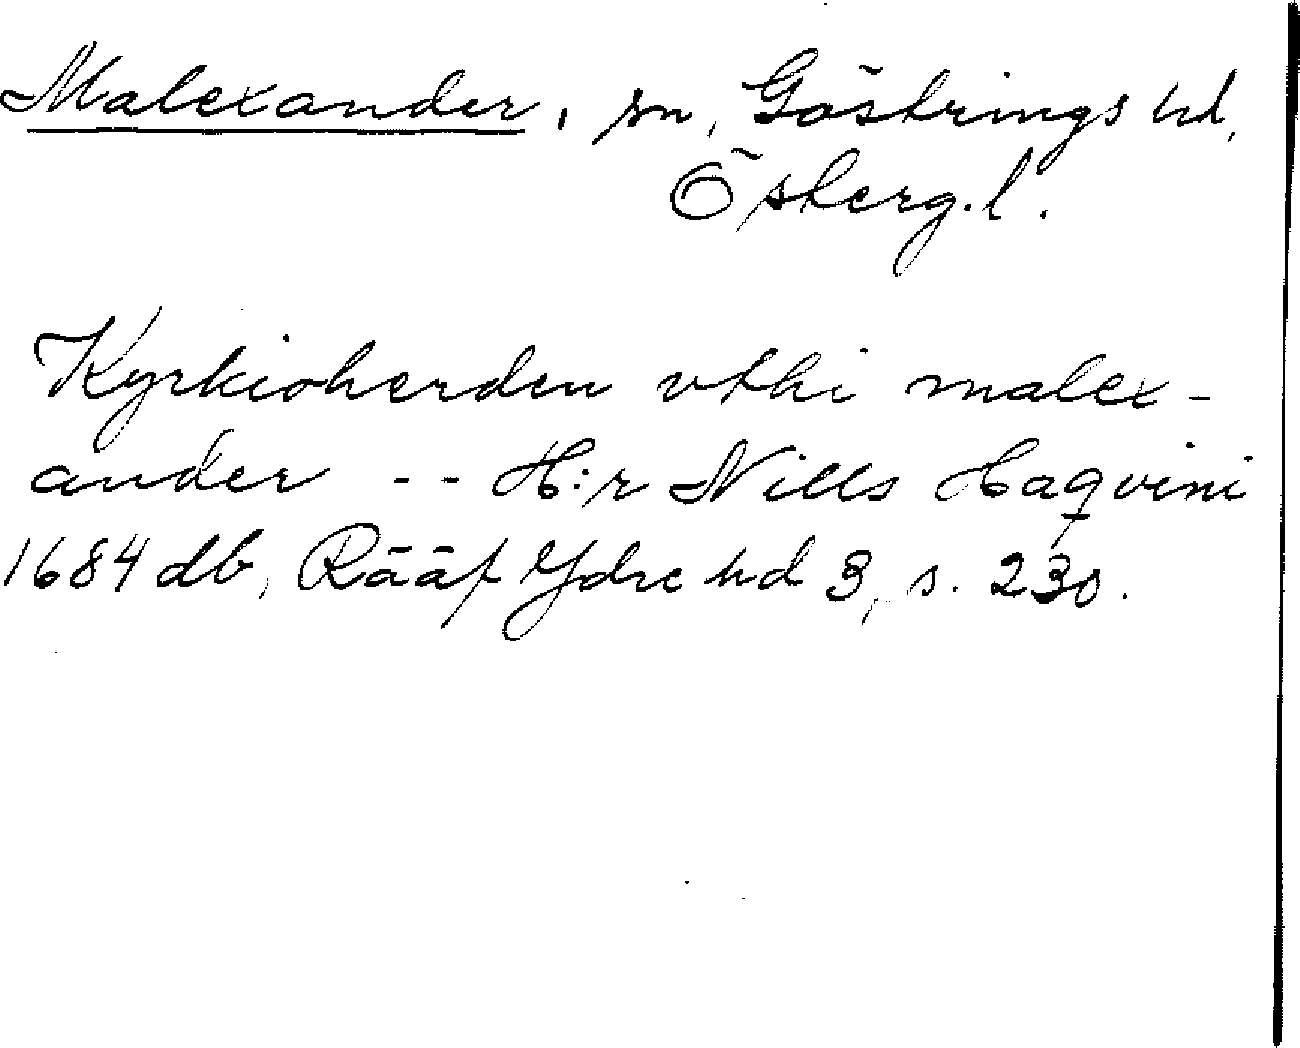 Malexander, sn, Göstrings hd,
Österg.l.
Kyrkioherden vthi malex-
ander -- H:r Nills Haqvini
1684 db, Rääf Ydre hd 3, s. 230.